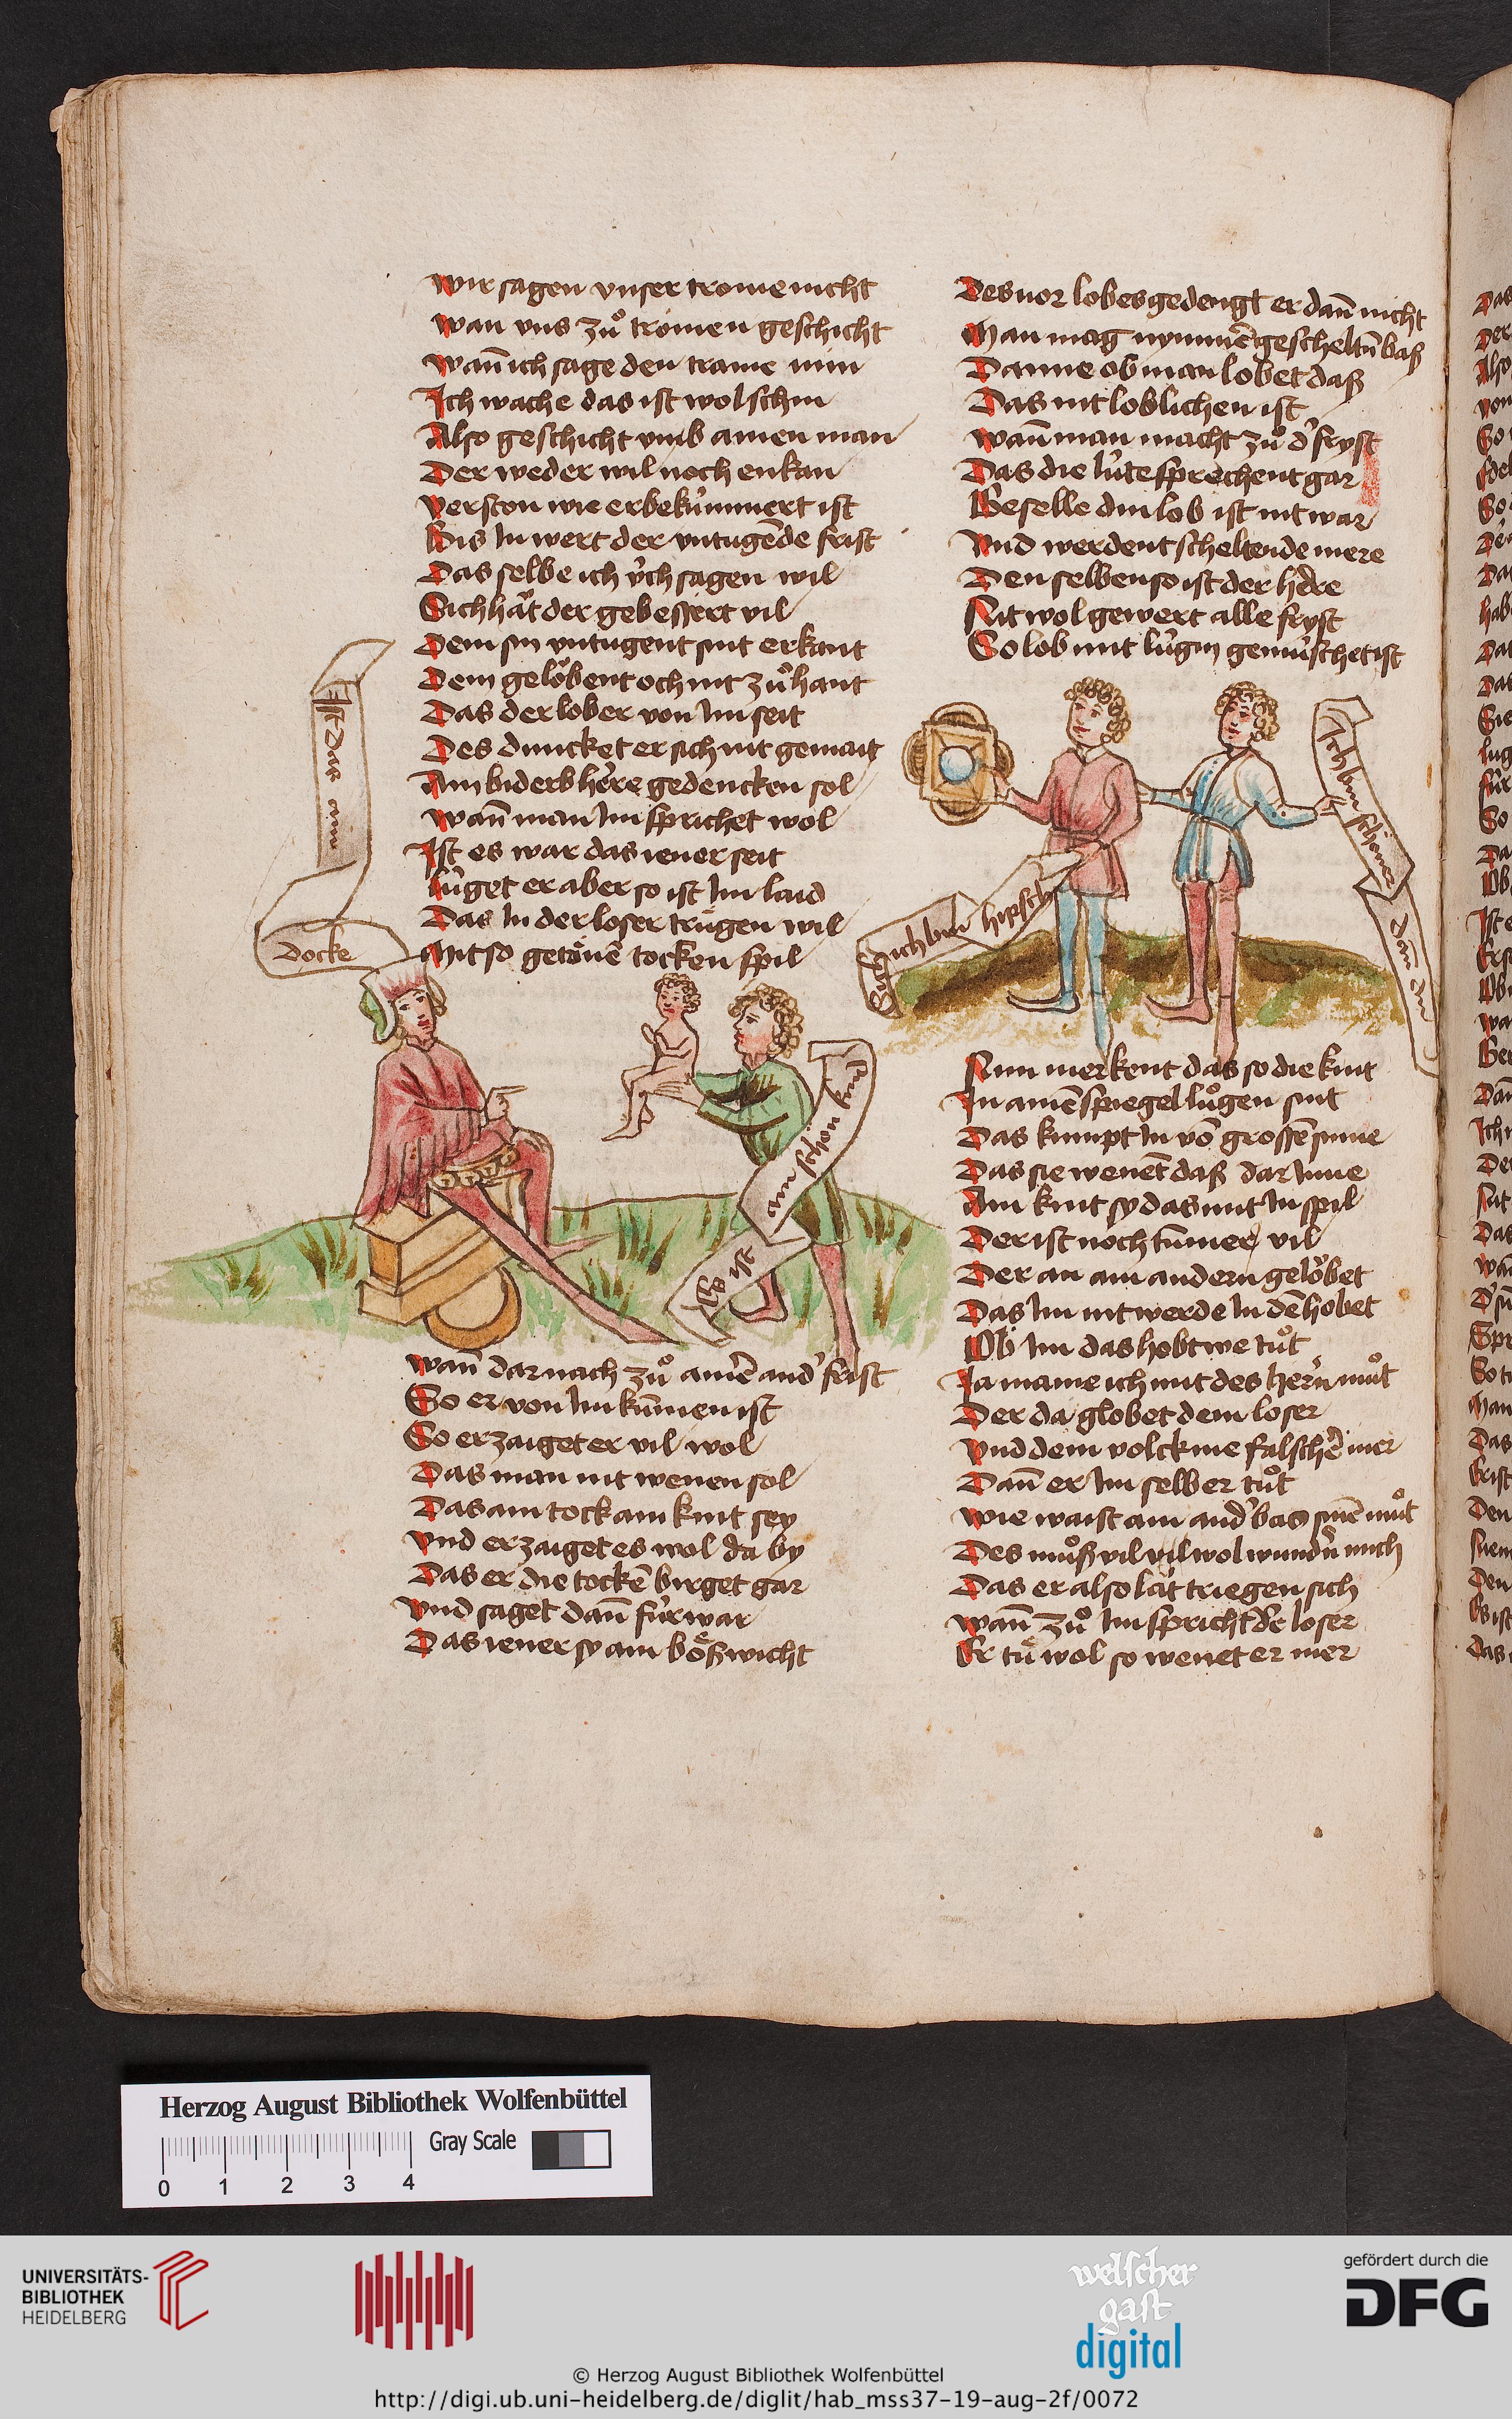 Wir sagen vnser trome nicht
Wan vns zuͦ tromen geschicht
Wan̄ ich sage den trame min
Ich wache das ist wol schin
Also geschicht vmb ainen man
Der weder wil noch enkan
Verston wie er bekúmmert ist
Bis In wert der vntugēde frist
Das selbe ich v́ch sagen wil
Sich hăt der gebessert vil
Dem sin vntugent sint erkant
Dem gelŏbent och nit zuͦ hant
Das der lober von Im seit
Des duncket er sich nit gemait
Ain biderb here gedencken sol
Wan̄ man Im sprichet wol
Ist es war das iener seit
Lúget er aber so ist Im laid
Das In der loser trúgen wil
Mit so getanē tocken spil
Ist das ain
docke
ain schön kint
Wan̄ dar nach zuͦ ainē and' frist
So er von Im kumen ist
So erzaiget er vil wol
Das man nit wenen sol
Das ain tock ain kint sey
Vnd erzaiget es wol da by
Das er die tockē birget gar
Vnd saget dan̄ fúr war
Das iener sy ain bößwicht
Des vor lobes gedengt er dan̄ nicht
Man mag nymmē gescheltn̄ baß
Danne ob man lobet daß
Das nit loblichen ist
Wan̄ man macht zuͦ d' fryst
Das die lúte sprechent gar
Geselle din lob ist nit war
Vnd werdent scheltende mere
Den selben so ist der here
Nit wol gewert alle fryst
So lob mit lúgin gemúschet ist
ich bin hipsch
Ich bin schöner
dān du
Nun merkent das so die kint
In ainē spiegel luͦgen sint
Das kumpt In vō grossē sinne
Das sie wenēt daß dar Inne
Ain kint sy das mit In spil
Der ist noch tūmer vil
Der an ain andern gelöbet
Das Im nit werde In dē hobet
Ob Im das hobt we tuͦt
Ia maine ich mit des hern̄ muͦt
Der da globet dem loser
Vnd dem volck me falschē mer
Dan̄ er Im selber tuͦt
Wie waist ain and' bas sinē muͦt
Des muͦß vil vil wol wundn̄ mich
Das er also lăt triegen sich
Wan̄ zuͦ Im spricht de loser
Er tuͤ wol so wenet er mer
Herzog August Bibliothek Wolfenbüttel
Gray Scale
0 1 2 3 4
UNIVERSITÄTS-
BIBLIOTHEK
HEIDELBERG
welscher
gast
digital
gefördert durch die
DFG
© Herzog August Bibliothek Wolfenbüttel
http://digi.ub.uni-heidelberg.de/diglit/hab_mss37-19-aug-2f/0072